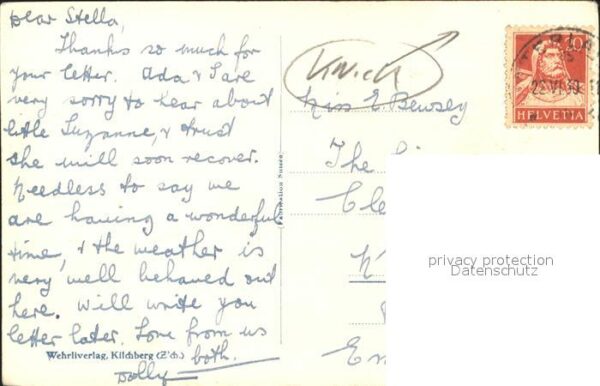 Dear Stella,
Thanks so much for
your letter. Ada & I are
very sorry to hear about
little Suzanne, & trust
she will soon recover.
Needless to say we
are having a wonderful
time, & the weather is
very well behaved out
here. Will write you
letter later. Love from us
both.
Dolly
Wehrliverlag, Kilchberg (Z'ch.)
Fabrication Suisse
Miss E. Bewsey
The
Cle
En
HELVETIA
privacy protection
Datenschutz